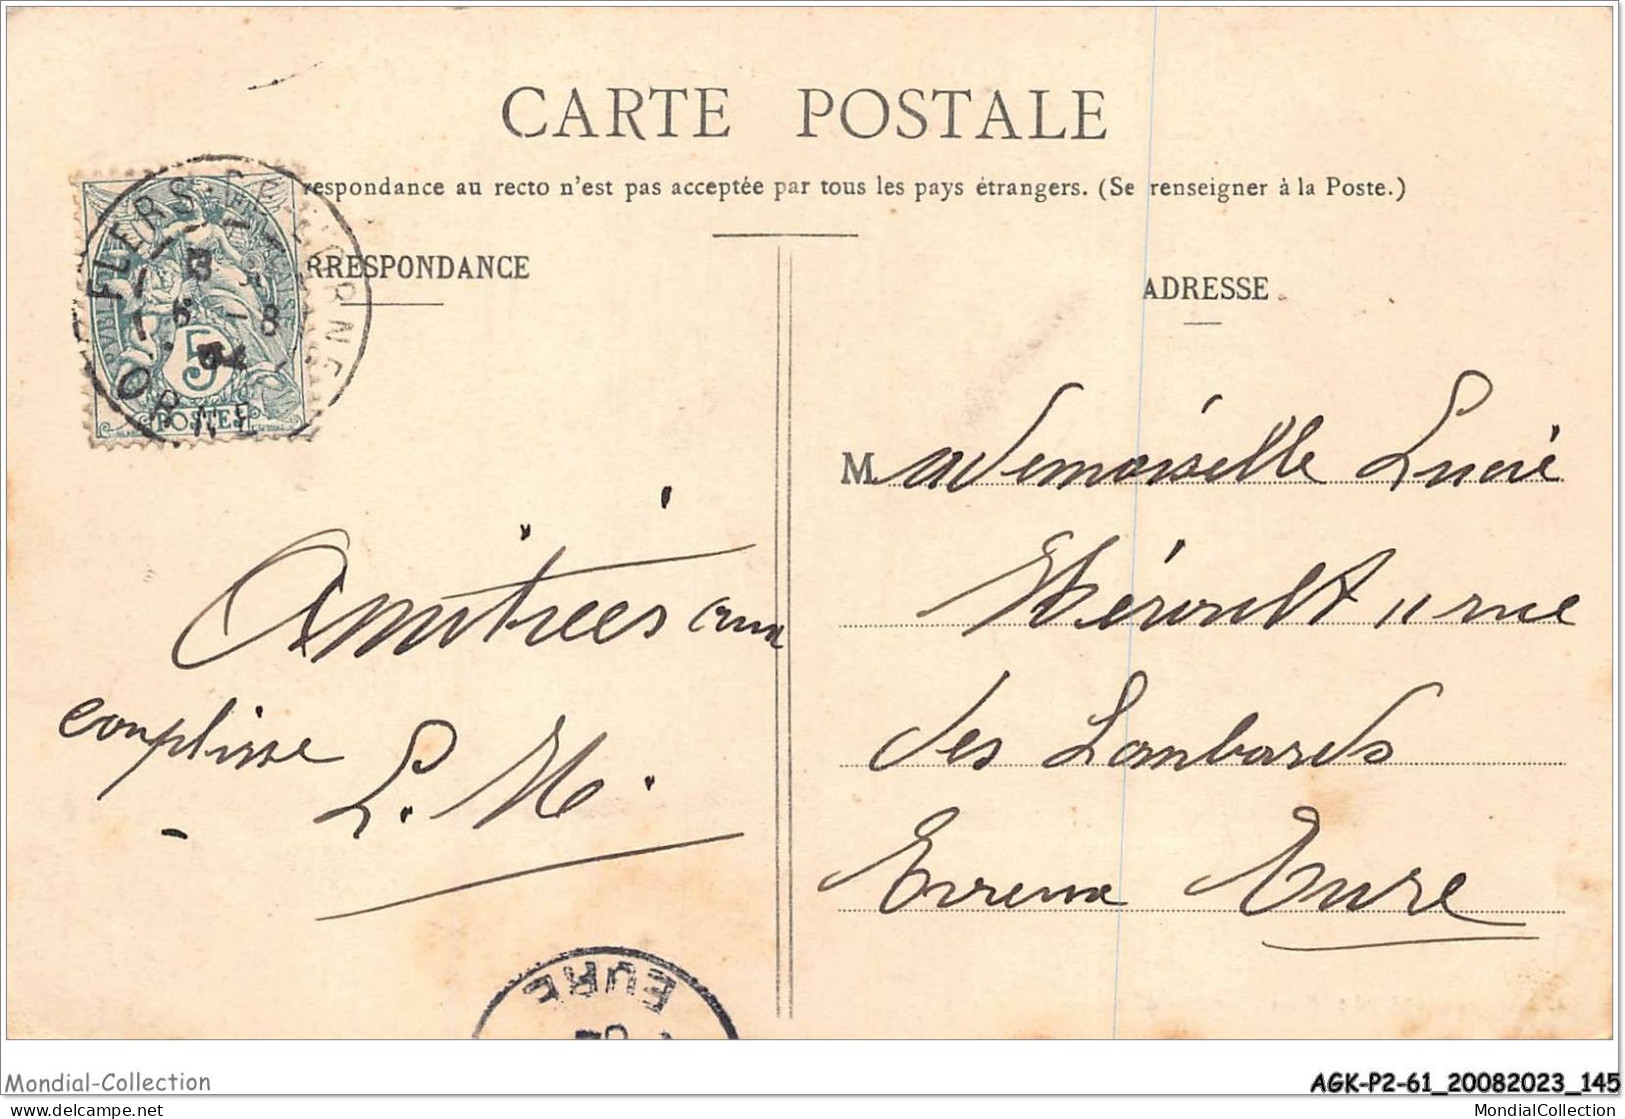 CARTE POSTALE
respondance au recto n'est pas acceptée par tous les pays étrangers. (Se renseigner à la Poste.)
RRESPONDANCE
ADRESSE
FLERS
ORNE
5
POSTES
Mademoiselle Lucie
Héroult 11 rue
des Lombards
Evreux Eure
Amitiés aux
complisse
L. H.
EURE
Mondial-Collection
AGK-P2-61_20082023_145
delcampe.net
MondialCollection